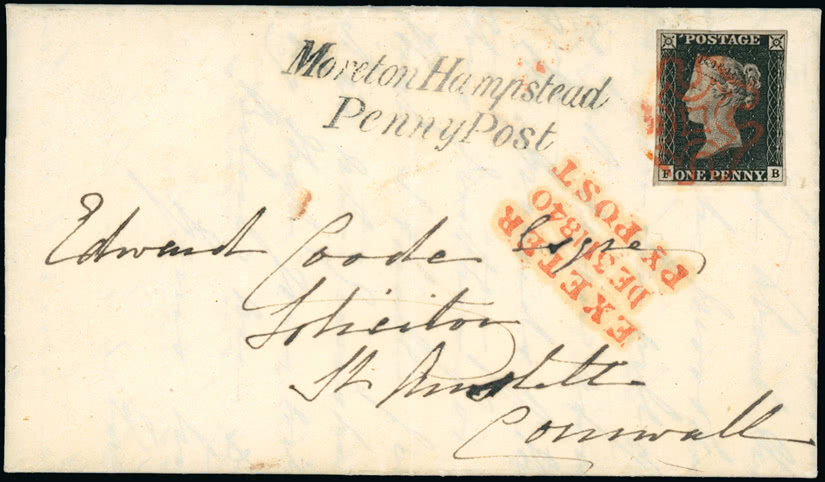 Moreton Hampstead
Penny Post
POSTAGE
F ONE PENNY B
EXETER
DE 31 1840
PY POST
Edward Coode Esqre
Solicitor
St Austell
Cornwall